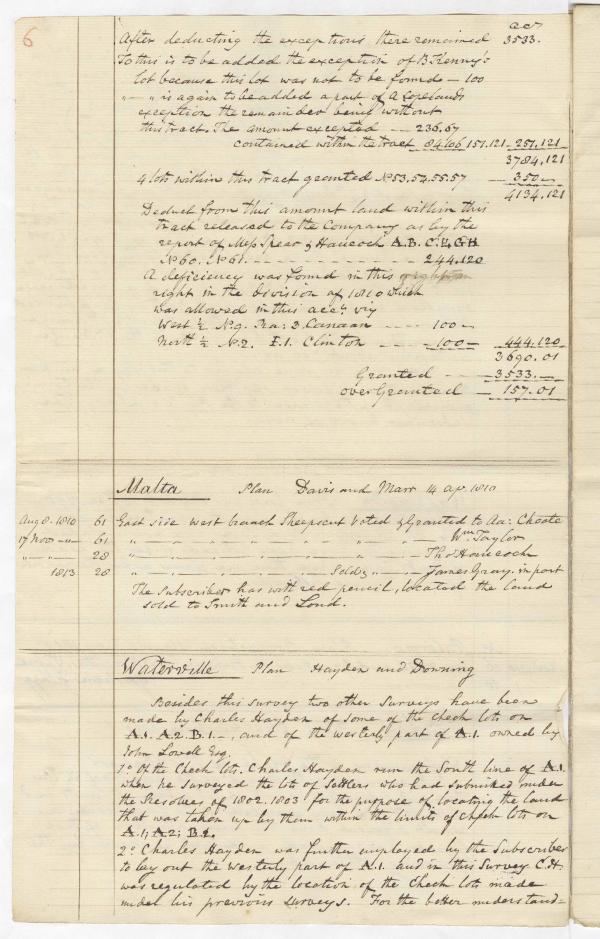 6
acs
After deducting the exceptions there remained 3533.
To this is to be added the exception of B Kenny's
lot because this lot was not to be found — 100
" — " is again to be added a part of A Copelands
exception the remainder being without
this tract. The amount excepted — — 236.67
contained within the tract 84.106 157.121 — 257.121
3784.121
4 lots within this tract granted No 53.54.55.57 — 350 —
4134.121
Deduct from this amount land within this
tract released to the Company as by the
report of Mess Spear & Hancock A.B.C.F.G.H
No 60. No 61. — — — — — — — 244.120
A deficiency was found in this
right in the Division of 1810 which
was allowed in this acct. viz
West ½ No 9. Ra: 3. Canaan — — — 100 —
North ½ No 2. E.1. Clinton — — — 100 — 444.120
3690.01
Granted — — 3533. —
over Granted — 157.01
Malta Plan Davis and Marr 14 Ap. 1810
Aug 8. 1810 61 East side west branch Sheepscut Voted & Granted to Aa: Choate
17 Nov — " — 61 " — " — " — " — " — " — " — Wm Taylor
" — " — 28 " — " — " — " — " — " — " — Tho Hancock
1813 28 " — " — " — " — Sold & " — James Gray. in part
The Subscriber has with red pencil, located the land
sold to Smith and Lond.
Waterville Plan Hayden and Downing
Besides this survey two other Surveys have been
made by Charles Hayden of some of the check lots on
A.1. A.2. B.1. —, and of the westerly part of A.1. owned by
John Lowell Esq.
1o. Of the Check lots. Charles Hayden run the South line of A.1.
when he surveyed the lots of Settlers who had submitted under
the Resolves of 1802. 1803 for the purpose of locating the land
that was taken up by them within the limits of check lots on
A.1; A.2; B.2.
2o. Charles Hayden was further employed by the Subscriber
to lay out the westerly part of A.1. and in this Survey C.H.
was regulated by the location of the Check lots made
under his previous Surveys. For the better understand=